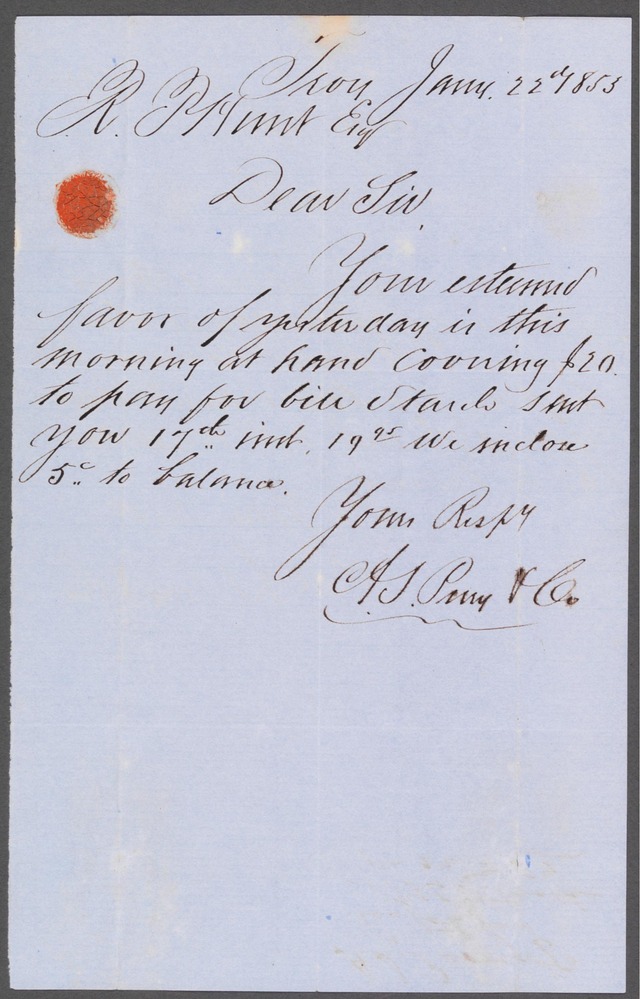 Troy Jany. 22d 1853
R. P. Hunt Esq
Dear Sir
Your esteemed
favor of yesterday is this
morning at hand covering $20.
to pay for bill Starch sent
you 17th inst. 19 95 We inclose
5c. to balance.
Yours Respy
A. S. Perry & Co